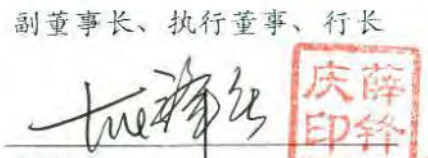 副董事长、执行董事、行长
薛锋
庆印